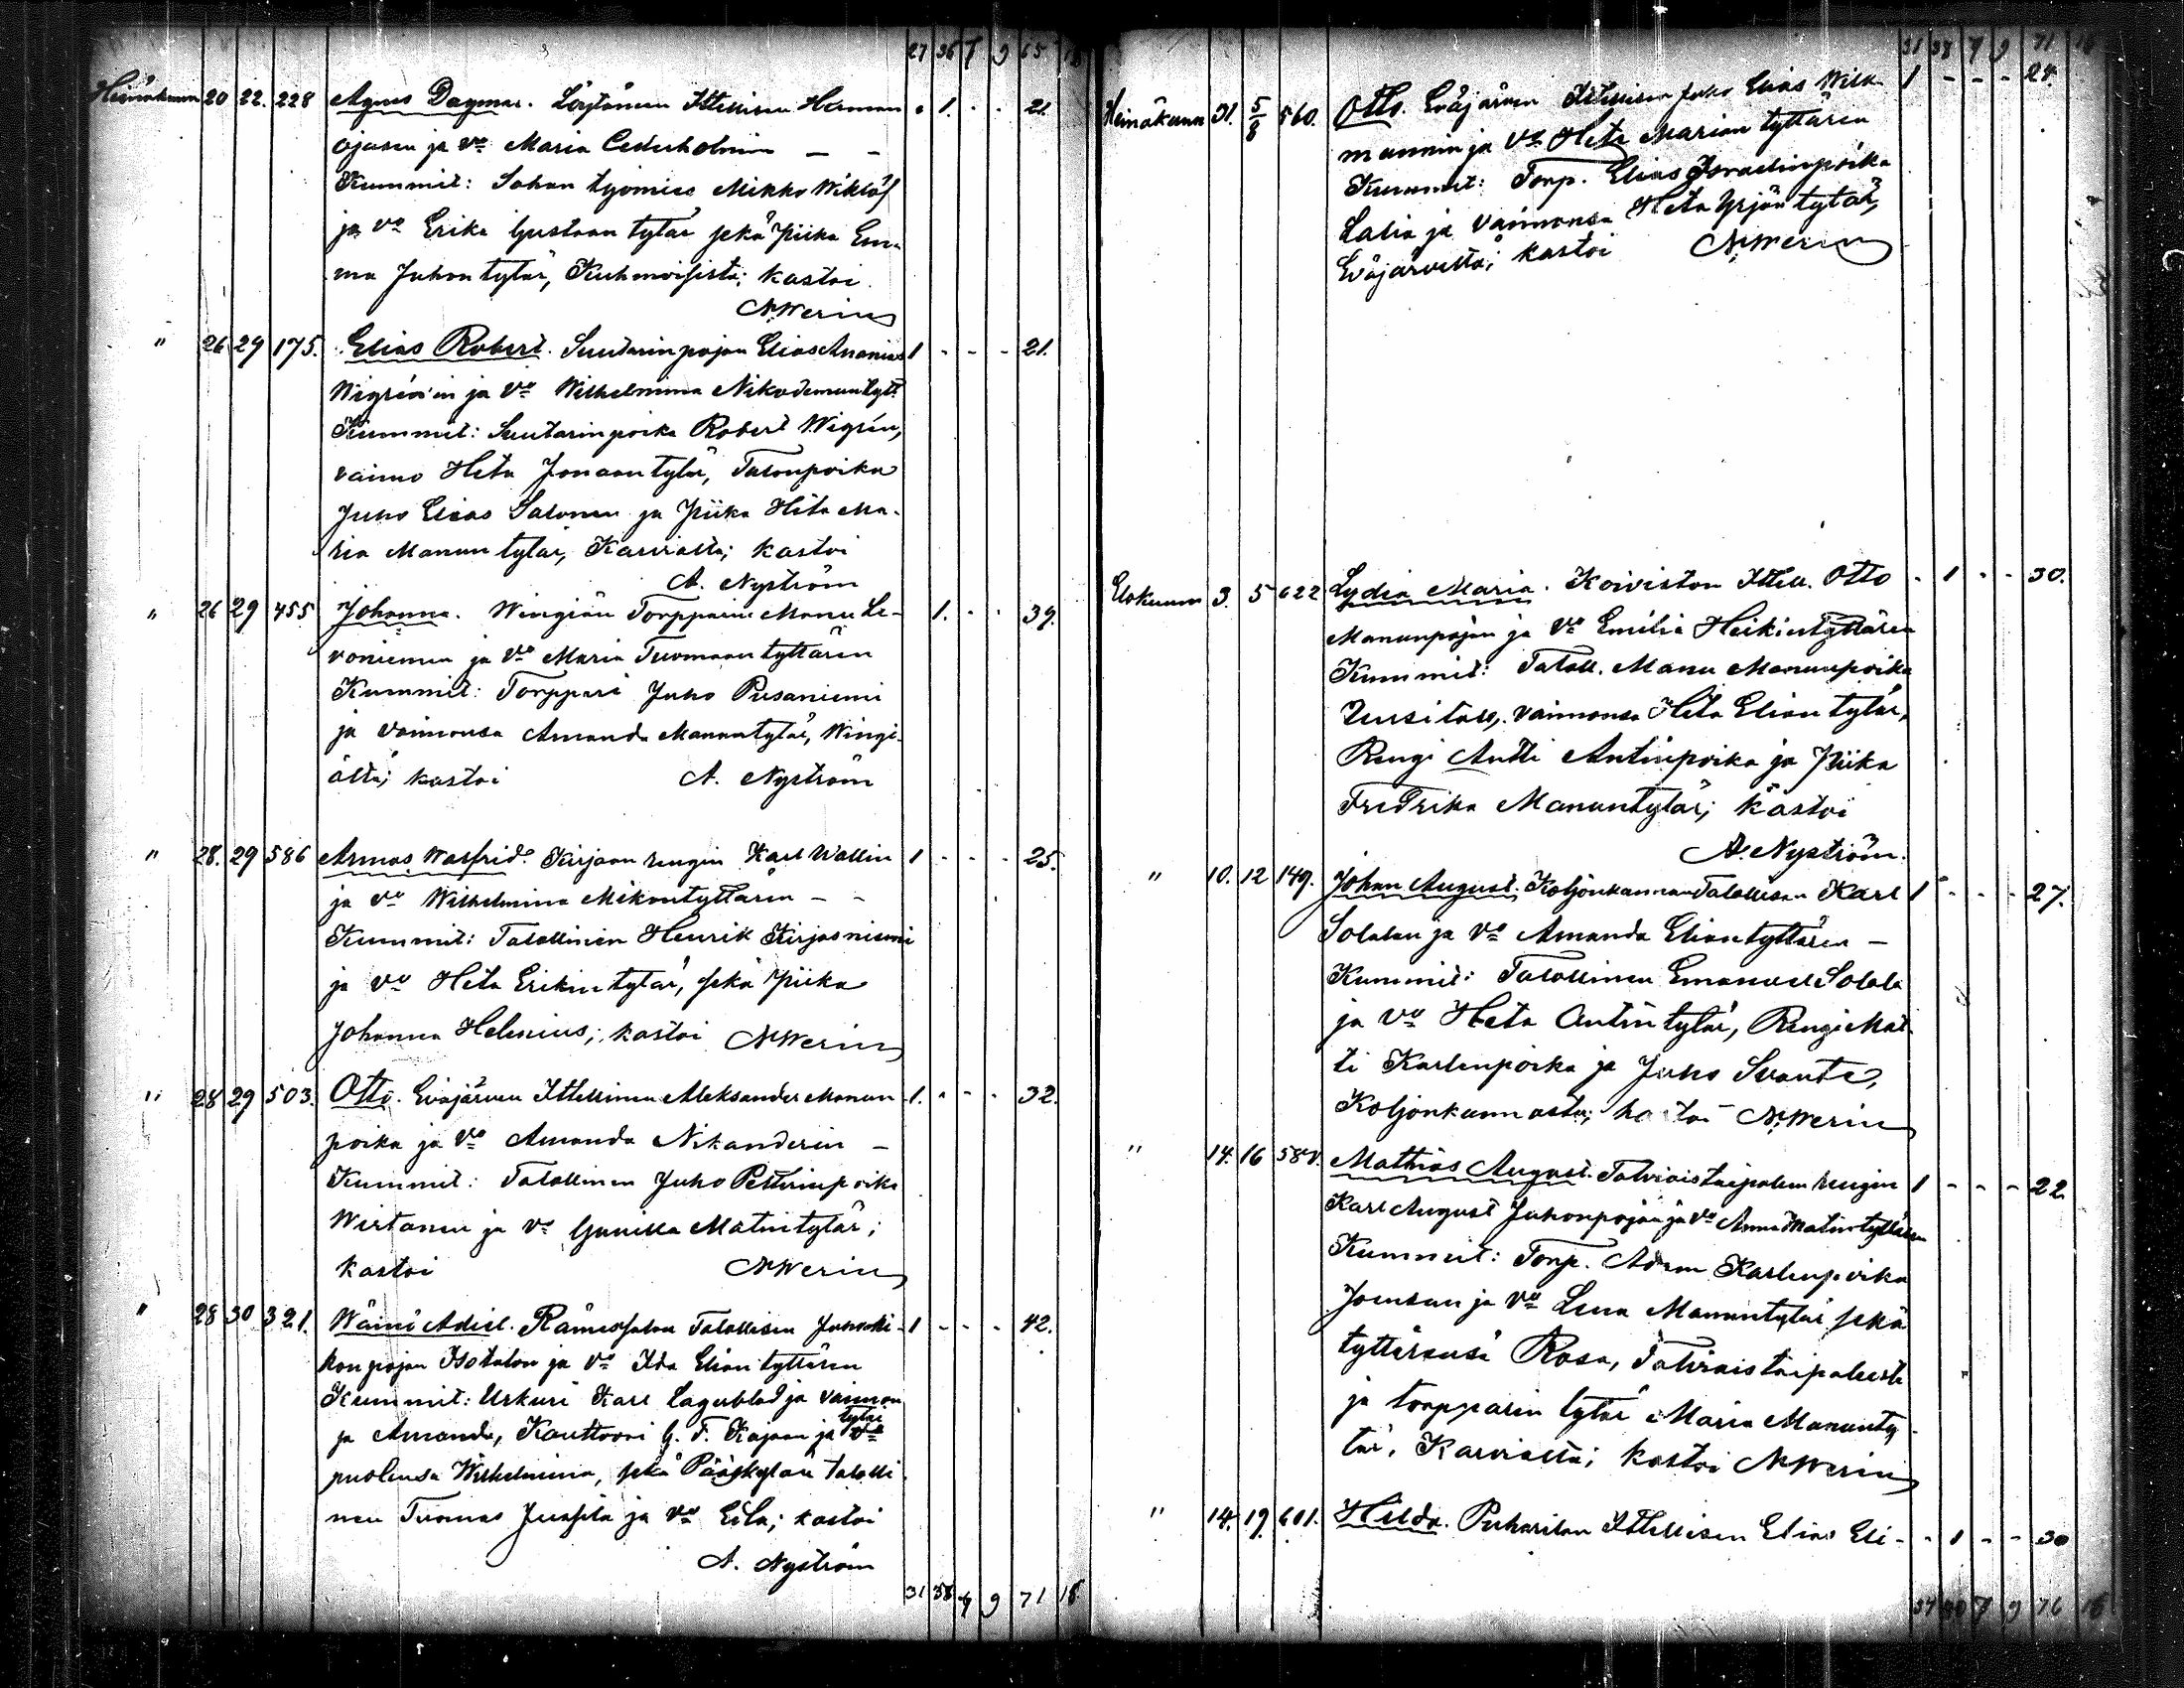 27 36 7 9 65 18
Heinäkuun 20 22. 228 Agnes Dagmar. Löytänen Ittellisen Herman - 1. - - 21.
Ojasen ja vo Maria Cederholmin — —
Kummit: Sahan työmies Mikko Wiklöf
ja vo Erika Gustaan tytär sekä Piika Em-
ma Juhontytär, Kuhmoisista; kastoi
N. Werin
" 26 29 175. Elias Robert. Suutarinpojan Elias Ananias 1 - - - 21.
Wigrénin ja vo Wilhelmina Nikodemuntytt.
Kummit: Suutarinpoika Robert Wigrén,
vaimo Heta Jonaantytär, Talonpoika
Juho Elias Salonen ja Piika Heta Ma-
ria Manuntytär, Karvialta; kastoi
A. Nyström
" 26 29 455 Johanna. Wingiän Torpparin Manu Le- - 1. - - 39.
voniemen ja vo Maria Tuomaantyttären
Kummit: Torppari Juho Pusaniemi
ja vaimonsa Amanda Manuntytär, Wingi-
ältä; kastoi A. Nyström
" 28. 29 586 Armas Walfrid. Kirjaan rengin Karl Wallin 1 - - - 25.
ja vo Wilhelmina Mikontyttären - -
Kummit: Talollinen Henrik Kirjasniemi
ja vo Heta Erikintytär, sekä Piika
Johanna Helenius; kastoi N. Werin
" 28 29 503. Otto. Eväjärven Ittellinen Aleksander Manun- 1. - - - 32.
poika ja vo Amanda Nikanderin —
Kummit: Talollinen Juho Petterinpoika
Wirtanen ja vo Gunilla Matintytär;
kastoi N. Werin
" 28 30 321. Wäinö Adiel. Rämessalon Talollisen Juho Mi- 1 - - - 42.
konpojan Isotalon ja vo Ida Eliantyttären
Kummit: Urkuri Karl Lagerblad ja vaimon
tytär
ja Amanda, Kanttoori G. F. Kajaan ja vo
puolensa Wilhelmina, sekä Pääskylän taloli-
nen Tuomas Jussila ja vo Eila; kastoi
A. Nyström
31 38 7 9 71 18
31 38 7 9 71 18
Heinäkuun 31. 5/8 560. Otto. Eväjärven Ittellisen Juho Elias Wilk- 1 - - - 24.
mannin ja vo Heta Marian tyttären
Kummit: Torp. Elias Israelinpoika
Latia ja vaimonsa Heta Yrjöntytär,
Eväjärveltä; kastoi N. Werin
Elokuun 3. 5 622 Lydia Maria. Koiviston Ittell. Otto - 1 - - 30.
Manunpojan ja vo Emilia Heikintyttären
Kummit: Taloll. Manu Manunpoika
Uusitalo, vaimonsa Heta Eliantytär,
Rengi Antti Antinpoika ja Piika
Fredrika Manuntytär; kastoi
A. Nyström.
" 10. 12 149. Johan August. Koljonkannan Talollisen Karl 1 - - - 27.
Solalan ja vo Amanda Eliantyttären —
Kummit: Talollinen Emanuel Solala
ja vo Heta Antintytär, Rengi Mat-
ti Karlenpoika ja Juho Svante,
Koljonkannasta; kastoi N. Werin
" 14. 16 580. Mathias August. Talviaistaipaleen rengin 1 - - - 22.
Karl August Juhonpojan ja vo Anna Matintyttären
Kummit: Torp. Adam Karlenpoika
Joensuu ja vo Lena Manuntytär sekä
tyttärensä Rosa, Talviaistaipaleesta
ja torpparin tytär Maria Manunty-
tär, Karvialta; kastoi N. Werin
" 14. 19. 601. Hilda. Puharilan Ittellisen Elias Eli- - 1 - - 30
34 40 7 9 76 18